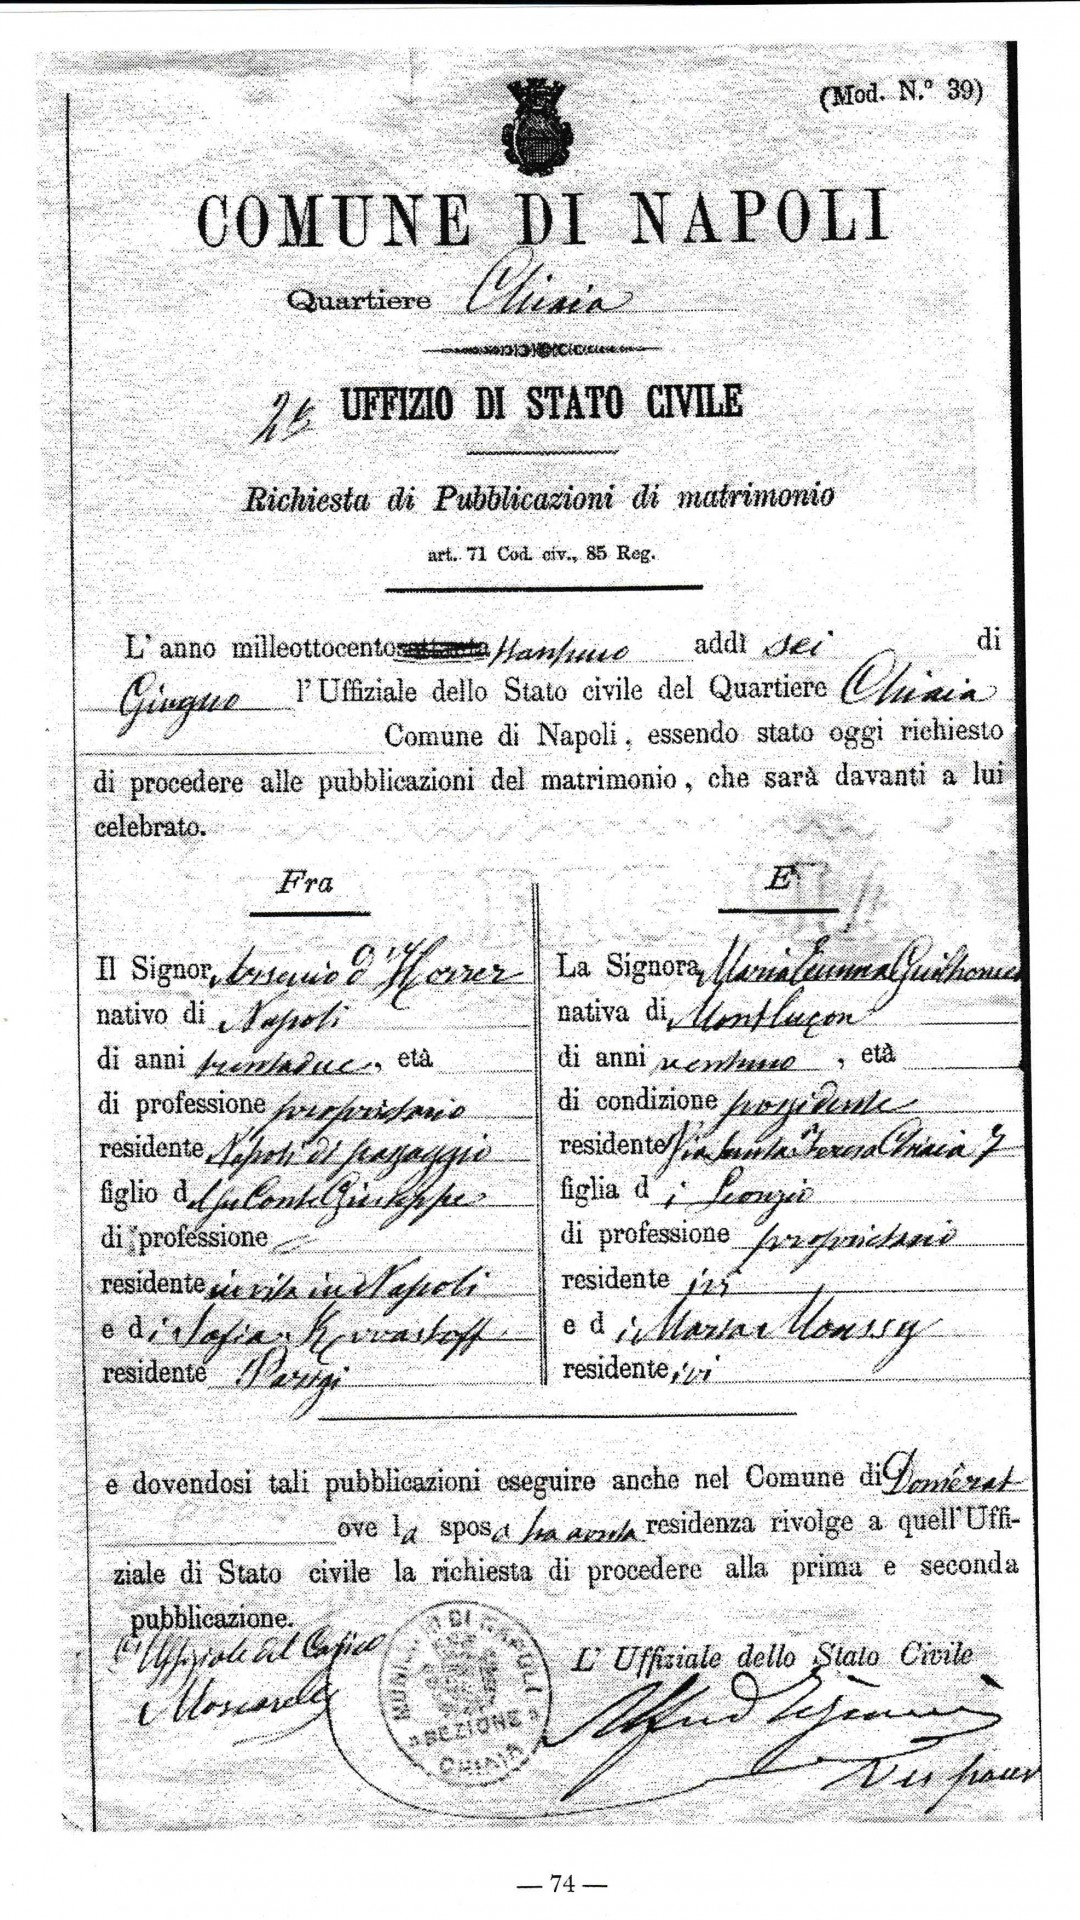 (Mod. N.° 39)
COMUNE DI NAPOLI
Quartiere Chiaia
25 UFFIZIO DI STATO CIVILE
Richiesta di Pubblicazioni di matrimonio
art. 71 Cod. civ., 85 Reg.
L'anno milleottocento addì sei di
Giugno l'Uffiziale dello Stato civile del Quartiere Chiaia
Comune di Napoli, essendo stato oggi richiesto
di procedere alle pubblicazioni del matrimonio, che sarà davanti a lui
celebrato.
Fra
Il Signor Arsenio d'Horrer
nativo di Napoli
di anni trentadue, età
di professione proprietario
residente Napoli di passaggio
figlio del fu Conte Giuseppe
di professione
residente in vita in Napoli
e di Sofia
residente Parigi
E
La Signora Maria Emma
nativa di Montluçon
di anni ventuno, età
di condizione possidente
residente Via Santa Teresa Chiaia 7
figlia di Leonzio
di professione proprietario
residente ivi
e di Maria Moussy
residente ivi
e dovendosi tali pubblicazioni eseguire anche nel Comune di Domérat
ove la sposa ha avuta residenza rivolge a quell'Uffi-
ziale di Stato civile la richiesta di procedere alla prima e seconda
pubblicazione.
L'Uffiziale del Carico
MUNICIPIO DI NAPOLI
SEZIONE
CHIAIA
L'Uffiziale dello Stato Civile
— 74 —